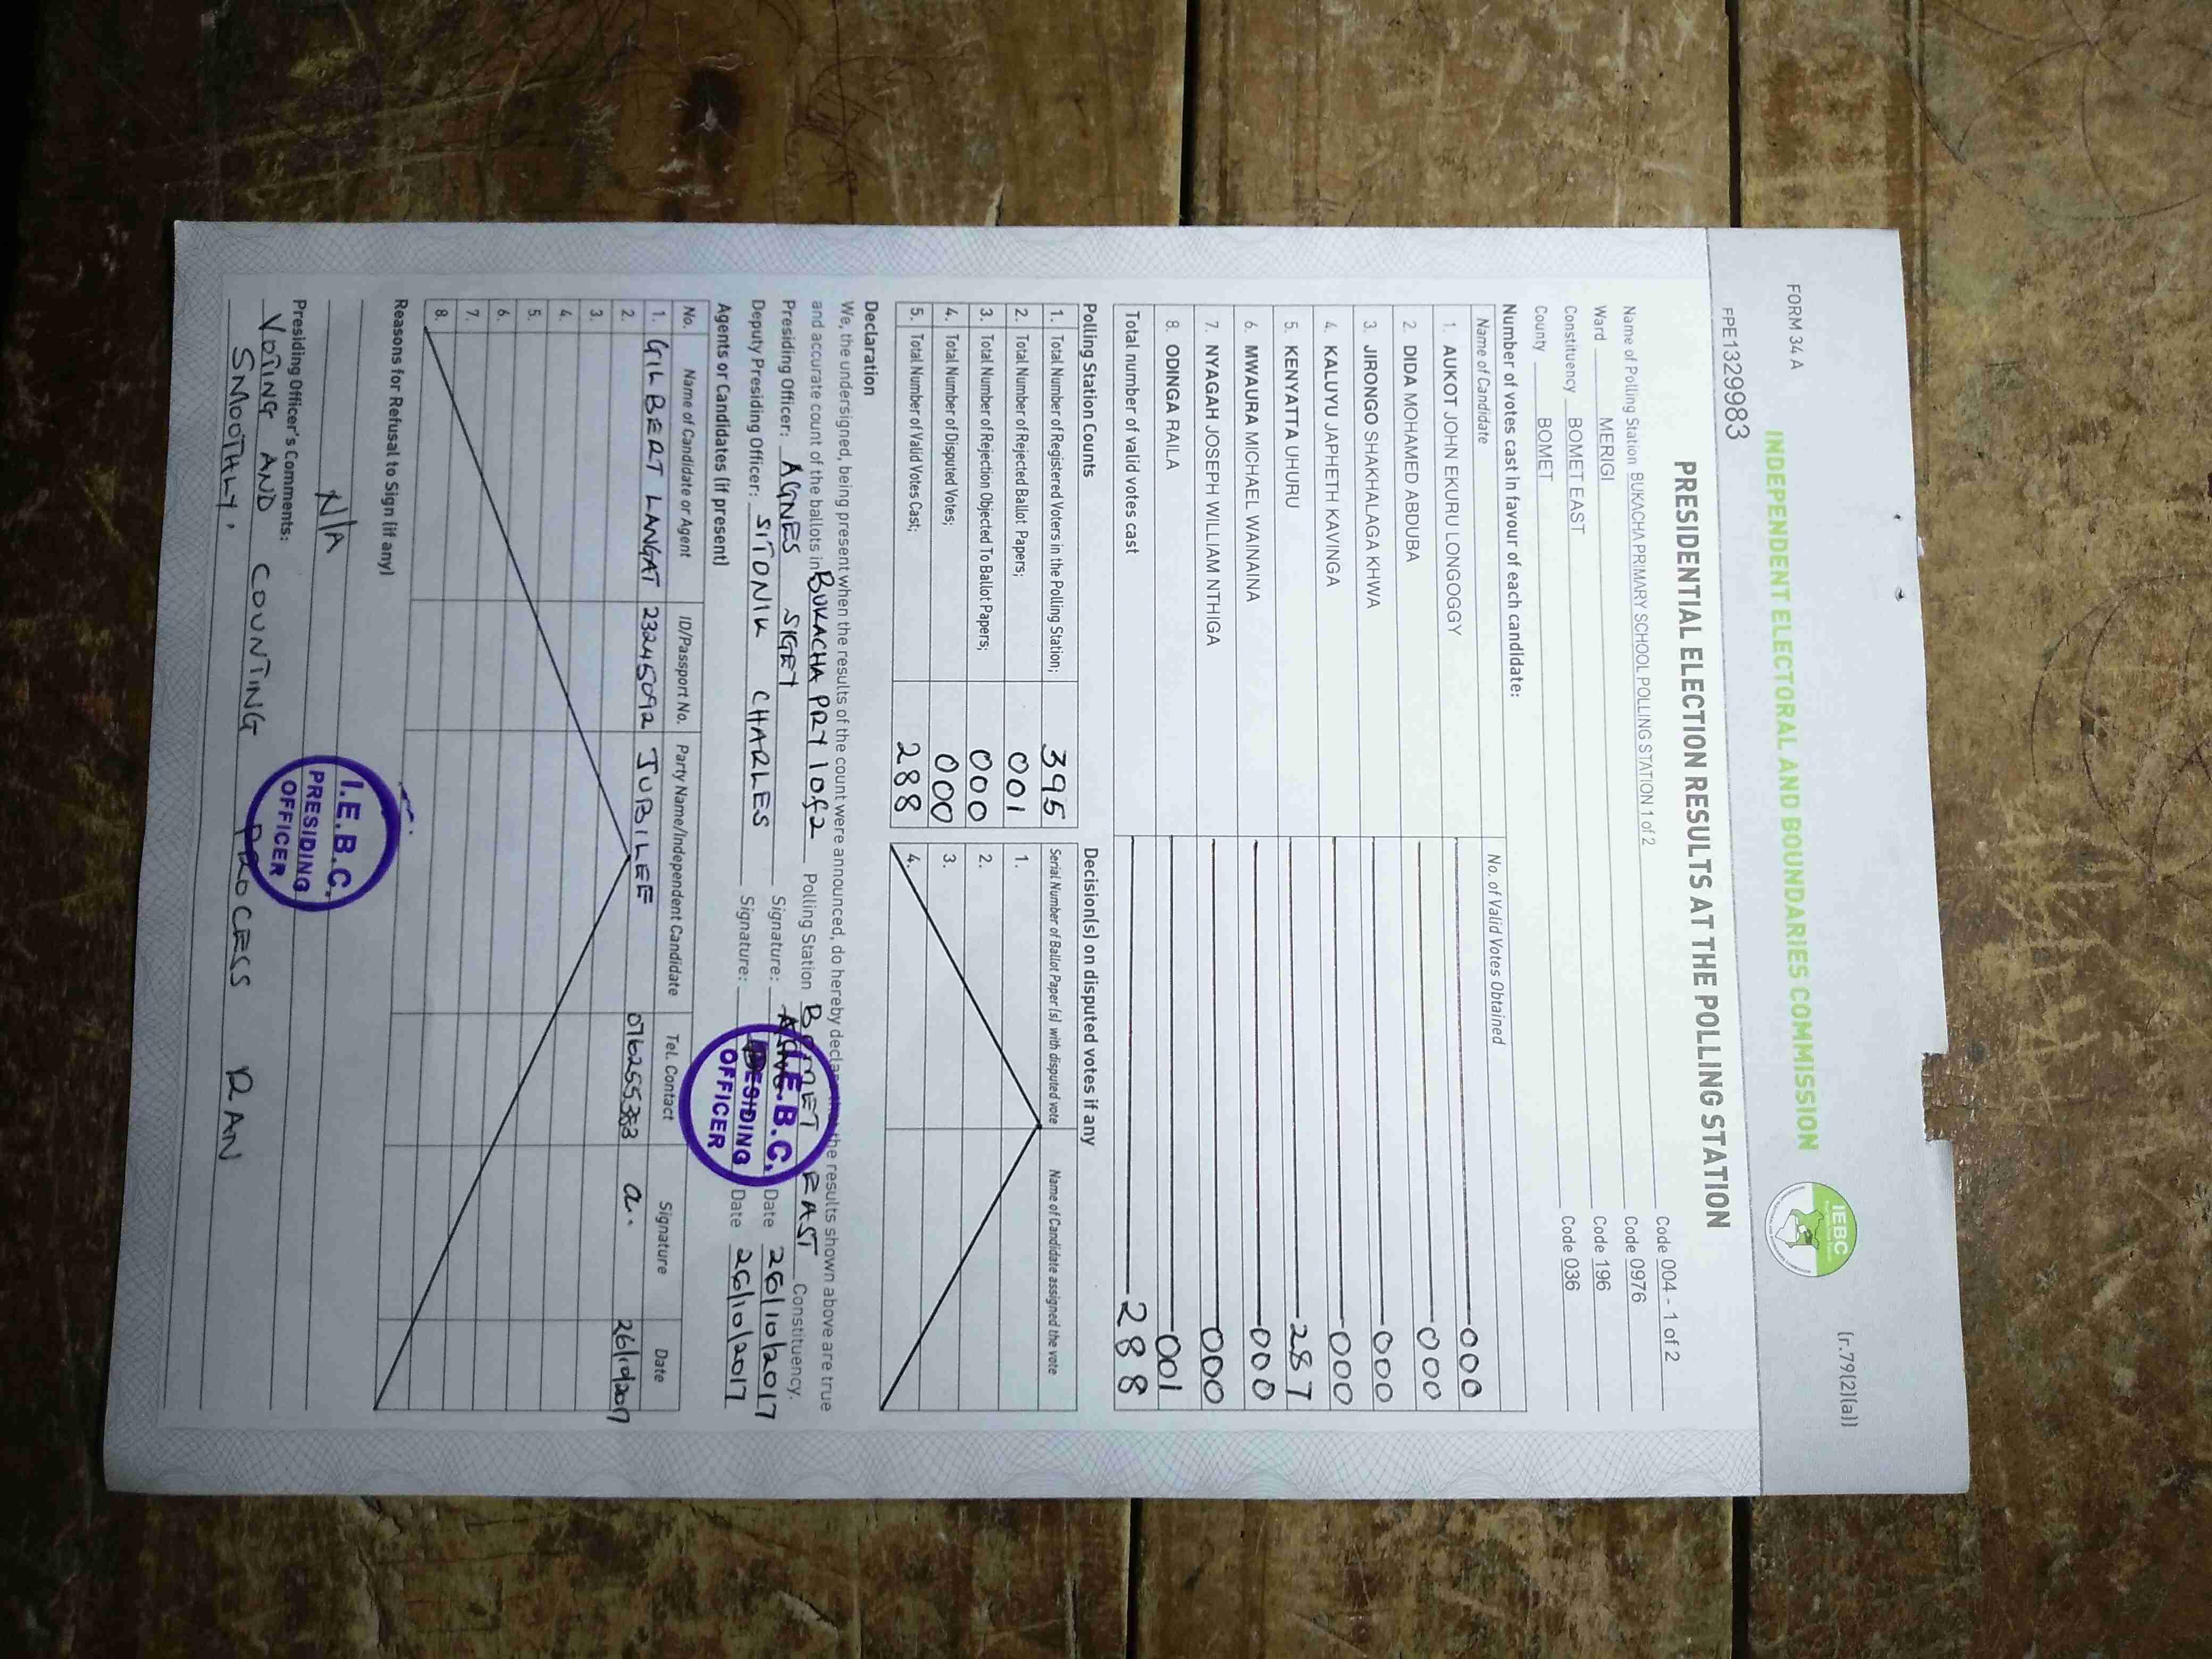 FORM 34 A
(r.79(2)(a))
INDEPENDENT ELECTORAL AND BOUNDARIES COMMISSION
IEBC
FPE1329983
PRESIDENTIAL ELECTION RESULTS AT THE POLLING STATION
Code 004 - 1 of 2
Name of Polling Station BUKACHA PRIMARY SCHOOL POLLING STATION 1 of 2 Code 0976
Ward MERIGI Code 196
Constituency BOMET EAST Code 036
County BOMET
Number of votes cast in favour of each candidate:
Name of Candidate No. of Valid Votes Obtained
1. AUKOT JOHN EKURU LONGOGGY 000
2. DIDA MOHAMED ABDUBA 000
3. JIRONGO SHAKHALAGA KHWA 000
4. KALUYU JAPHETH KAVINGA 000
5. KENYATTA UHURU 287
6. MWAURA MICHAEL WAINAINA 000
7. NYAGAH JOSEPH WILLIAM NTHIGA 000
8. ODINGA RAILA 001
Total number of valid votes cast 288
Polling Station Counts
1. Total Number of Registered Voters in the Polling Station; 395
2. Total Number of Rejected Ballot Papers; 001
3. Total Number of Rejection Objected To Ballot Papers; 000
4. Total Number of Disputed Votes; 000
5. Total Number of Valid Votes Cast; 288
Decision(s) on disputed votes if any
Serial Number of Ballot Paper(s) with disputed vote Name of Candidate assigned the vote
1.
2.
3.
4.
Declaration
We, the undersigned, being present when the results of the count were announced, do hereby declare the results shown above are true
and accurate count of the ballots in BUKACHA PRY 1 of 2 Polling Station BOMET EAST Constituency.
Presiding Officer: AGNES SIGEY Signature: Date 26/10/2017
Deputy Presiding Officer: SITONIK CHARLES Signature: Date 26/10/2017
I.E.B.C.
PRESIDING
OFFICER
Agents or Candidates (if present)
No. Name of Candidate or Agent ID/Passport No. Party Name/Independent Candidate Tel. Contact Signature Date
1. GILBERT LANGAT 23245092 JUBILEE 26/10/2017
2.
3.
4.
5.
6.
7.
8.
Reasons for Refusal to Sign (if any)
N/A
I.E.B.C.
PRESIDING
OFFICER
Presiding Officer's Comments:
VOTING AND COUNTING PROCESS RAN
SMOOTHLY.